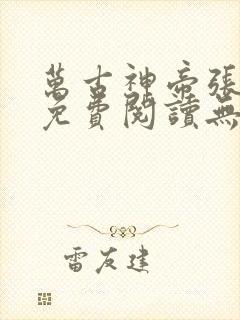 萬古神帝張
免費閱讀無
雷友建